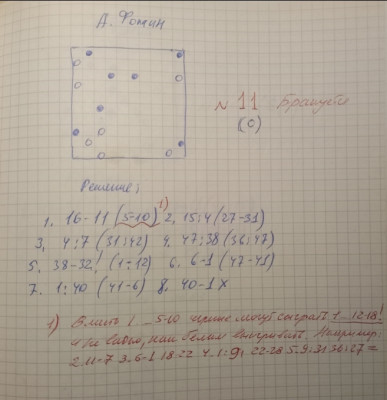 А. Фомин
№ 11 Бракуете
(0)
Решение;
1. 16-11 (5-10) 1) 2. 15:4 (27-31)
3. 4:7 (31:42) 4. 47:38 (36:47)
5. 38-32! (1:12) 6. 6-1 (47-41)
7. 1:40 (41-6) 8. 40-1 X
1) Вместо 1 ... 5-10 черные могут сыграть 1 ... 12-18!
и не видно, как белым выигрывать. Например:
2. 11-7 3. 6-1 18-22 4. 1:9; 22-28 5. 9:31 36:27 =